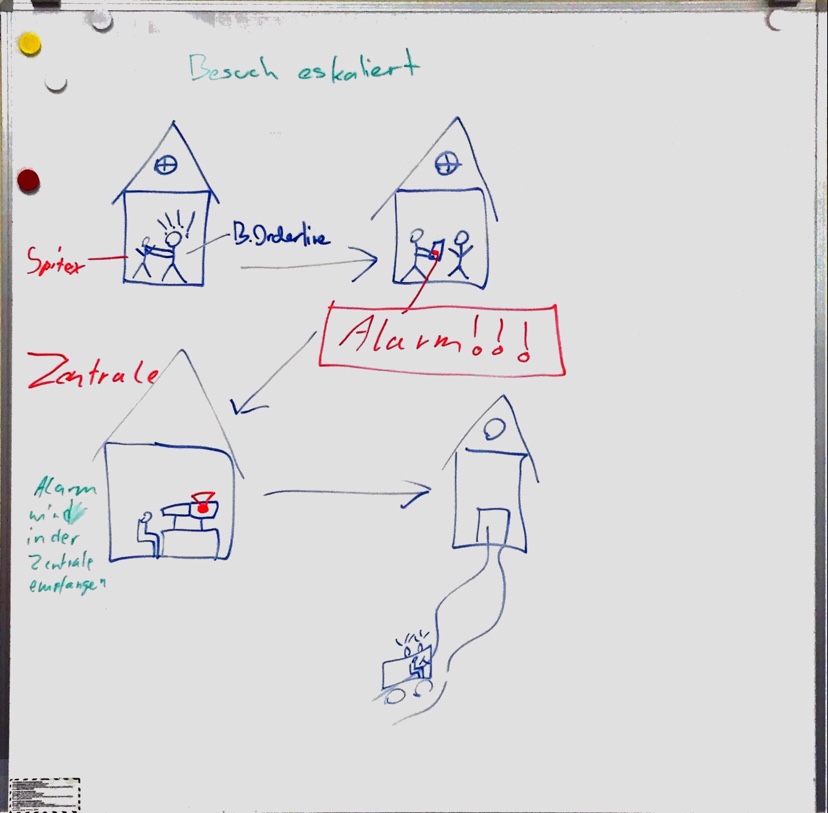 Besuch eskaliert
Spitex
B. Orderline
Alarm!!!
Zentrale
Alarm
wird
in der
Zentrale
empfangen